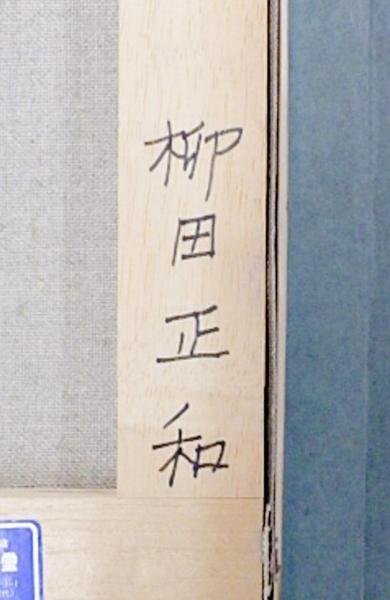 柳田正和